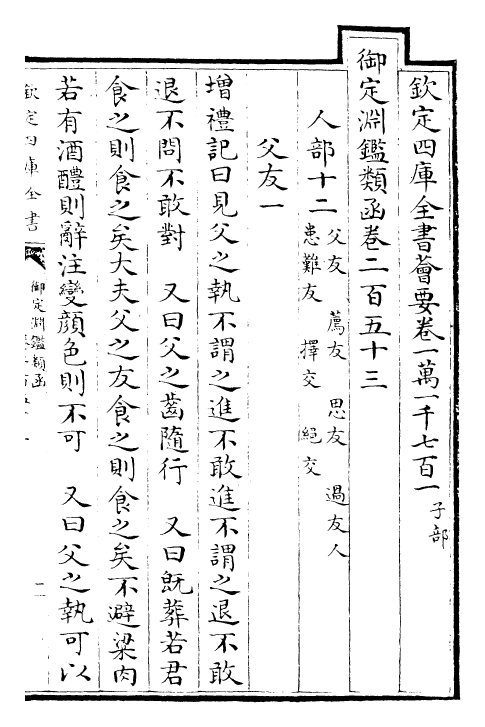 欽定四庫全書薈要卷一萬一千七百一 子部
御定淵鑑類函卷二百五十三
人部十二 父友 薦友 思友 過友人
患難友 擇交 絕交
父友一
增禮記曰見父之執不謂之進不敢進不謂之退不敢
退不問不敢對 又曰父之齒隨行 又曰既葬若君
食之則食之矣大夫父之友食之則食之矣不避粱肉
若有酒醴則辭注變顏色則不可 又曰父之執可以
欽定四庫全書
御定淵鑑類函